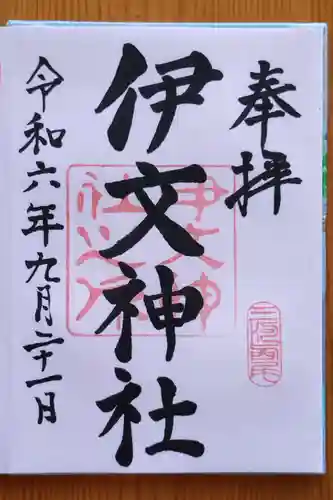 奉拝
伊文神社
伊文神社之印
令和六年九月二十一日